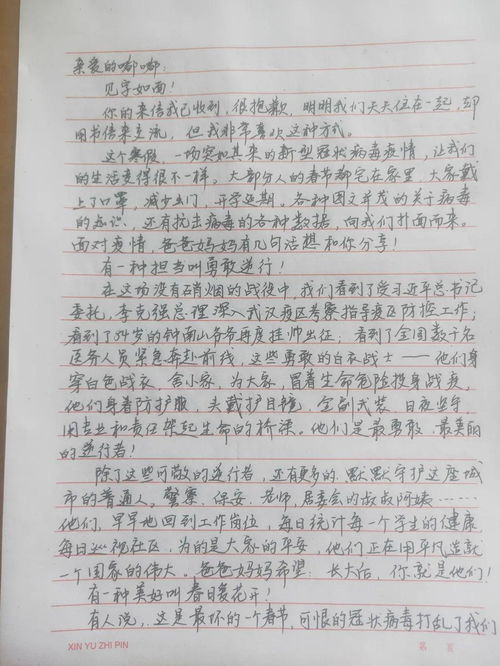 亲爱的嘟嘟:
见字如面!
你的来信我已收到,很抱歉,明明我们天天住在一起,却
用书信来交流,但我非常喜欢这种方式。
这个寒假,一场突如其来的新型冠状病毒疫情,让我们
的生活变得很不一样。大部分人的春节都宅在家里,大家戴
上了口罩,减少出门,开学延期。各种图文并茂的关于病毒
的知识,还有抗击病毒的各种数据,向我们扑面而来。
面对疫情,爸爸妈妈有几句话想和你分享!
有一种担当叫勇敢逆行!
在这场没有硝烟的战役中,我们看到了受习近平总书记
委托,李克强总理深入武汉疫区考察指导疫区防控工作;
看到了84岁的钟南山爷爷再度挂帅出征;看到了全国数千名
医务人员紧急奔赴前线,这些勇敢的白衣战士——他们身
穿白色战衣,舍小家,为大家,冒着生命危险投身战疫,
他们身着防护服,头戴护目镜,全副武装,日夜坚守,
用专业和责任架起生命的桥梁。他们是最勇敢、最美丽
的逆行者!
除了这些可敬的逆行者,还有更多的、默默守护这座城
市的普通人。警察、保安、老师、居委会的叔叔阿姨……
他们,早早地回到工作岗位,每日统计每一个学生的健康,
每日巡视社区,为的是大家的平安,他们正在用平凡造就
一个国家的伟大。爸爸妈妈希望:长大后,你就是他们!
有一种美好叫春日花开!
有人说,这是最坏的一个春节,可恨的冠状病毒打乱了我们
XIN YU ZHI PIN 第 页